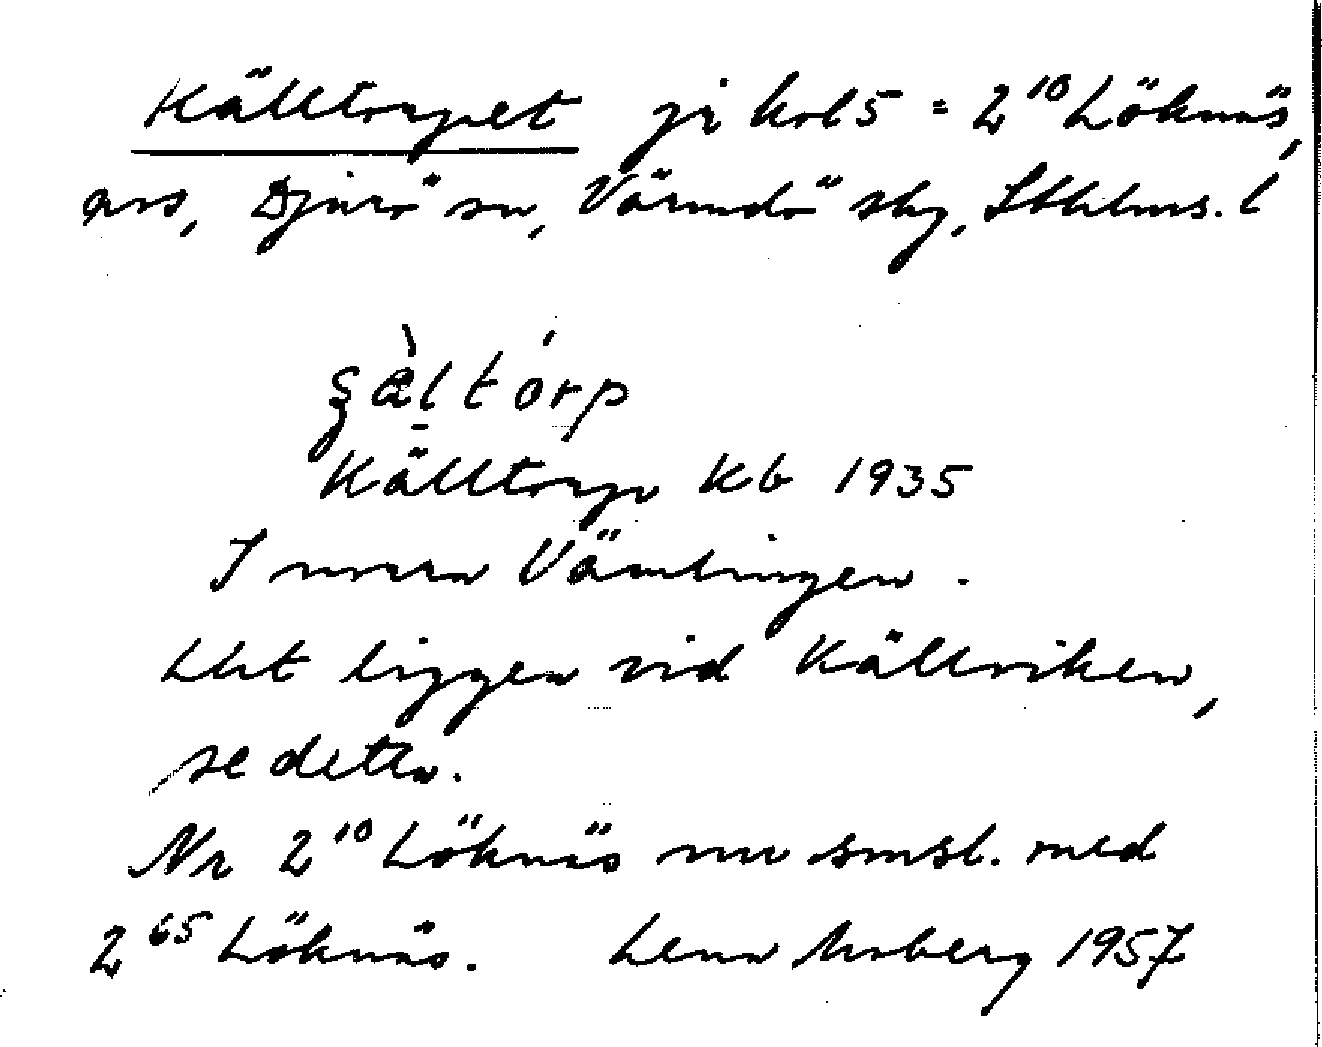 Källtorpet på kbl 5 = 2¹⁰ Löknäs,
avs, Djurö sn, Värmdö skg, Sthlms. l
Källtorp Kb 1935
I norra Vämlingen.
Lht ligger vid Källviken,
se detta.
Nr 2¹⁰ Löknäs nu smsl. med
2⁶⁵ Löknäs. Lena Moberg 1957